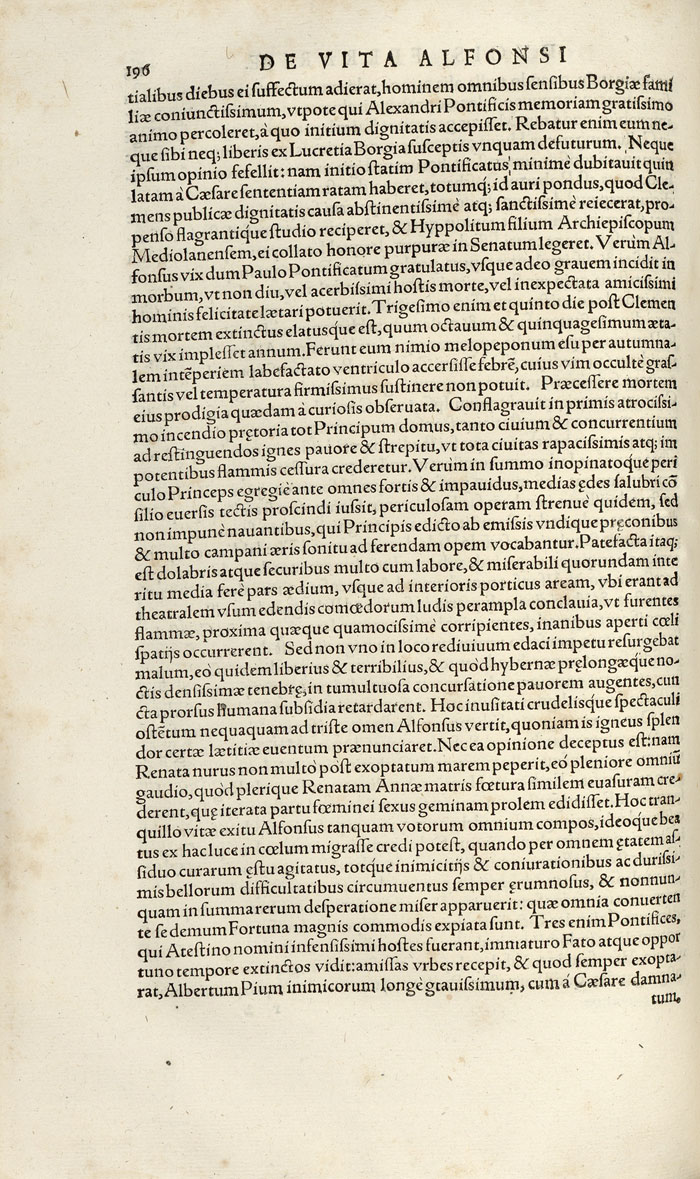 196
DE VITA ALFONSI
tialibus diebus ei ſuffectum adierat, hominem omnibus ſenſibus Borgiæ fami
liæ coniunctiſsimum, vtpote qui Alexandri Pontificis memoriam gratiſsimo
animo percoleret, à quo initium dignitatis accepiſſet. Rebatur enim eum ne-
que ſibi neq; liberis ex Lucretia Borgia ſuſceptis vnquam defuturum. Neque
ipſum opinio fefellit: nam initio ſtatim Pontificatus, minimè dubitauit quin
latam à Cæſare ſententiam ratam haberet, totumq; id auri pondus, quod Cle-
mens publicæ dignitatis cauſa abſtinentiſsimè atq; ſanctiſsimè reiecerat, pro-
penſo flagrantique ſtudio reciperet, & Hyppolitum filium Archiepiſcopum
Mediolanenſem, ei collato honore purpuræ in Senatum legeret. Verùm Al-
fonſus vix dum Paulo Pontificatum gratulatus, vſque adeo grauem incidit in
morbum, vt non diu, vel acerbiſsimi hoſtis morte, vel inexpectata amiciſsimi
hominis felicitate lætari potuerit. Trigeſimo enim et quinto die poſt Clemen
tis mortem extinctus elatusque eſt, quum octauum & quinquageſimum æta-
tis vix impleſſet annum. Ferunt eum nimio melopeponum eſu per autumna-
lem intẽperiem labefactato ventriculo accerſiſſe febrẽ, cuius vim occultè graſ-
ſantis vel temperatura firmiſsimus ſuſtinere non potuit. Præceſſere mortem
eius prodigia quædam à curioſis obſeruata. Conflagrauit in primis atrociſsi-
mo incendio prętoria tot Principum domus, tanto ciuium & concurrentium
ad reſtinguendos ignes pauore & ſtrepitu, vt tota ciuitas rapaciſsimis atq; im
potentibus flammis ceſſura crederetur. Verùm in ſummo inopinatoque peri
culo Princeps egregiè ante omnes fortis & impauidus, medias ędes ſalubri cõ
ſilio euerſis tectis proſcindi iuſsit, periculoſam operam ſtrenuè quidem, ſed
non impunè nauantibus, qui Principis edicto ab emiſsis vndique pręconibus
& multo campani æris ſonitu ad ferendam opem vocabantur. Patefacta itaq;
eſt dolabris atque ſecuribus multo cum labore, & miſerabili quorundam inte
ritu media ferè pars ædium, vſque ad interioris porticus aream, vbi erant ad
theatralem vſum edendis comœdorum ludis perampla conclauia, vt furentes
flammæ, proxima quæque quamociſsimè corripientes, inanibus aperti cœli
ſpatijs occurrerent. Sed non vno in loco rediuiuum edaci impetu reſurgebat
malum, eò quidem liberius & terribilius, & quòd hybernæ pręlongæque no-
ctis denſiſsimæ tenebrę, in tumultuoſa concurſatione pauorem augentes, cun
cta prorſus humana ſubſidia retardarent. Hoc inuſitati crudelisque ſpectaculi
oſtẽtum nequaquam ad triſte omen Alfonſus vertit, quoniam is igneus ſplen
dor certæ lætitiæ euentum prænunciaret. Nec ea opinione deceptus eſt: nam
Renata nurus non multò poſt exoptatum marem peperit, eò pleniore omniũ
gaudio, quòd plerique Renatam Annæ matris fœtura ſimilem euaſuram cre-
derent, quę iterata partu fœminei ſexus geminam prolem edidiſſet. Hoc tran-
quillo vitæ exitu Alfonſus tanquam votorum omnium compos, ideoque bea
tus ex hac luce in cœlum migraſſe credi poteſt, quando per omnem ętatem aſ-
ſiduo curarum ęſtu agitatus, totque inimicitijs & coniurationibus ac duriſsi-
mis bellorum difficultatibus circumuentus ſemper ęrumnoſus, & nonnun-
quam in ſumma rerum deſperatione miſer apparuerit: quæ omnia conuerten
te ſe demum Fortuna magnis commodis expiata ſunt. Tres enim Pontifices,
qui Ateſtino nomini infenſiſsimi hoſtes fuerant, immaturo Fato atque oppor
tuno tempore extinctos vidit: amiſſas vrbes recepit, & quod ſemper exopta-
rat, Albertum Pium inimicorum longè gtauiſsimum, cum á Cæſare damna-
tum,